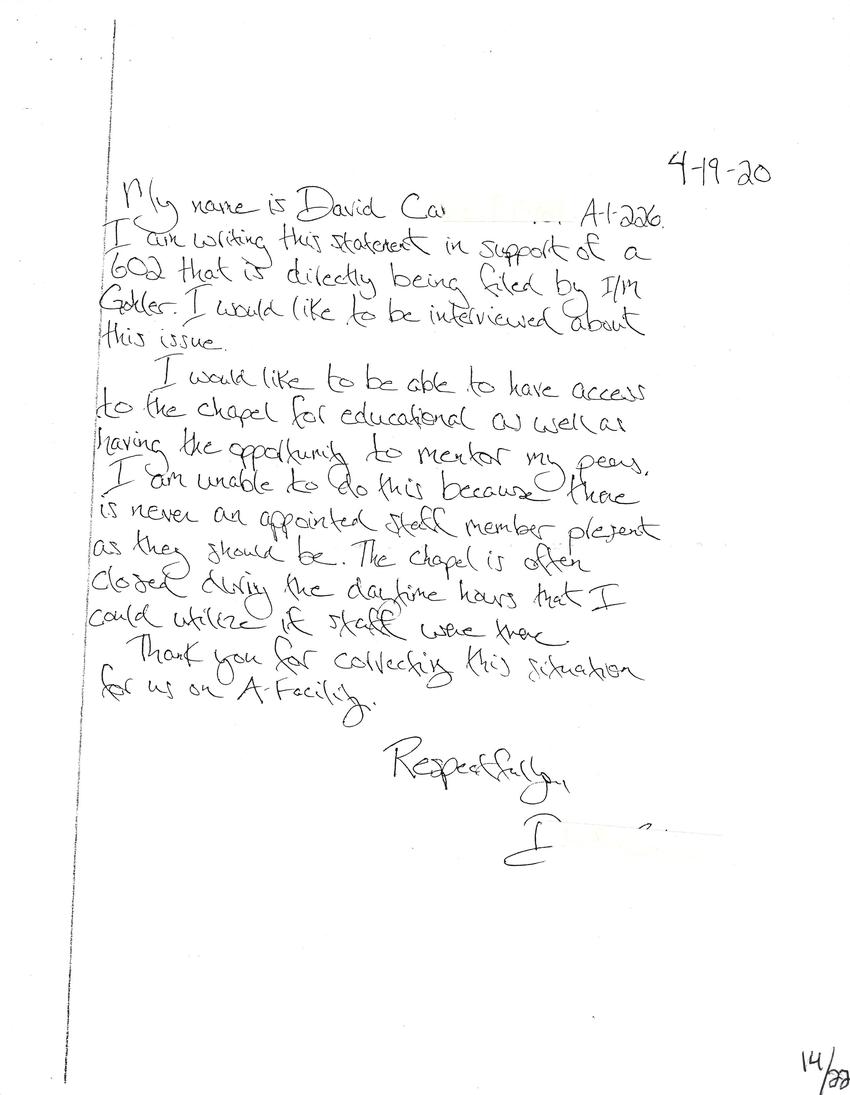 4-19-20
My name is David Ca ... A-1-226.
I am writing this statement in support of a
602 that is directly being filed by I/M
I would like to be interviewed about
this issue.
I would like to be able to have access
to the chapel for educational as well as
having the opportunity to mentor my peers.
I am unable to do this because there
is never an appointed staff member present
as they should be. The chapel is often
closed during the daytime hours that I
could utilize if staff were there.
Thank you for correcting this situation
for us on A-Facility.
Respectfully,
14/22